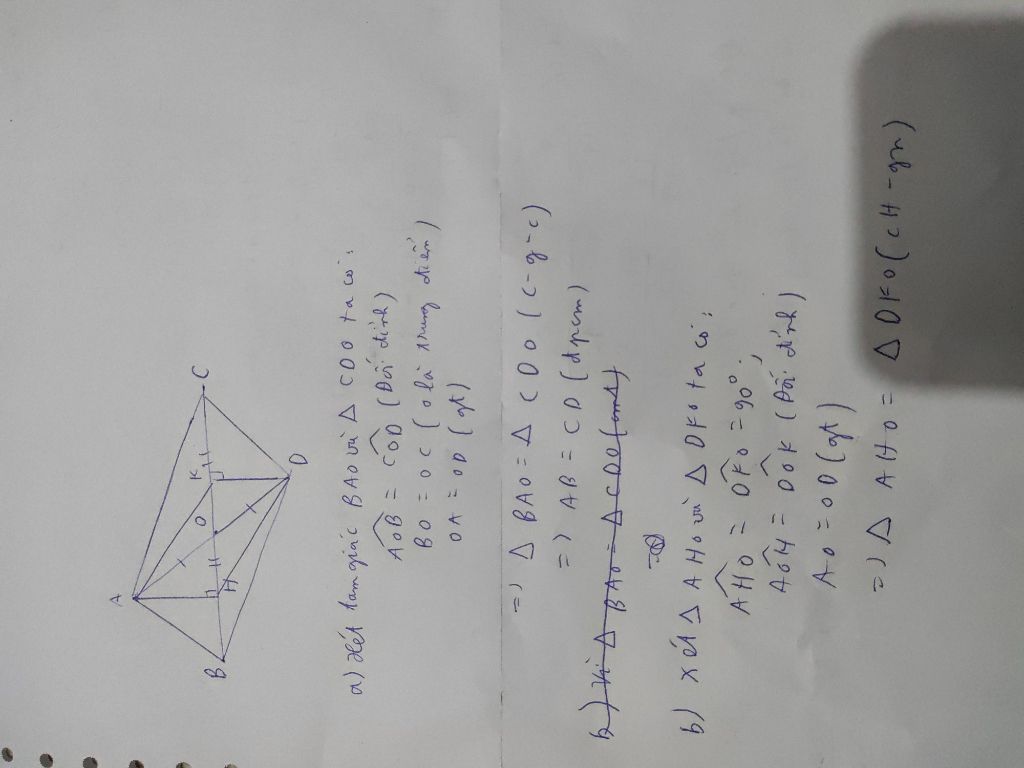 A
B
H
O
K
C
D
a) Xét tam giác BAO và Δ CDO ta có:
AOB = COD (Đối đỉnh)
BO = OC (O là trung điểm)
OA = OD (gt)
=) Δ BAO = Δ CDO (c-g-c)
=) AB = CD (đpcm)
b) Vì Δ BAO = Δ CDO (cmt)
b) Xét Δ AHO và Δ DKO ta có:
AHO = DKO = 90°
AOH = DOK (Đối đỉnh)
AO = OD (gt)
=) Δ AHO = Δ DKO (CH-gn)